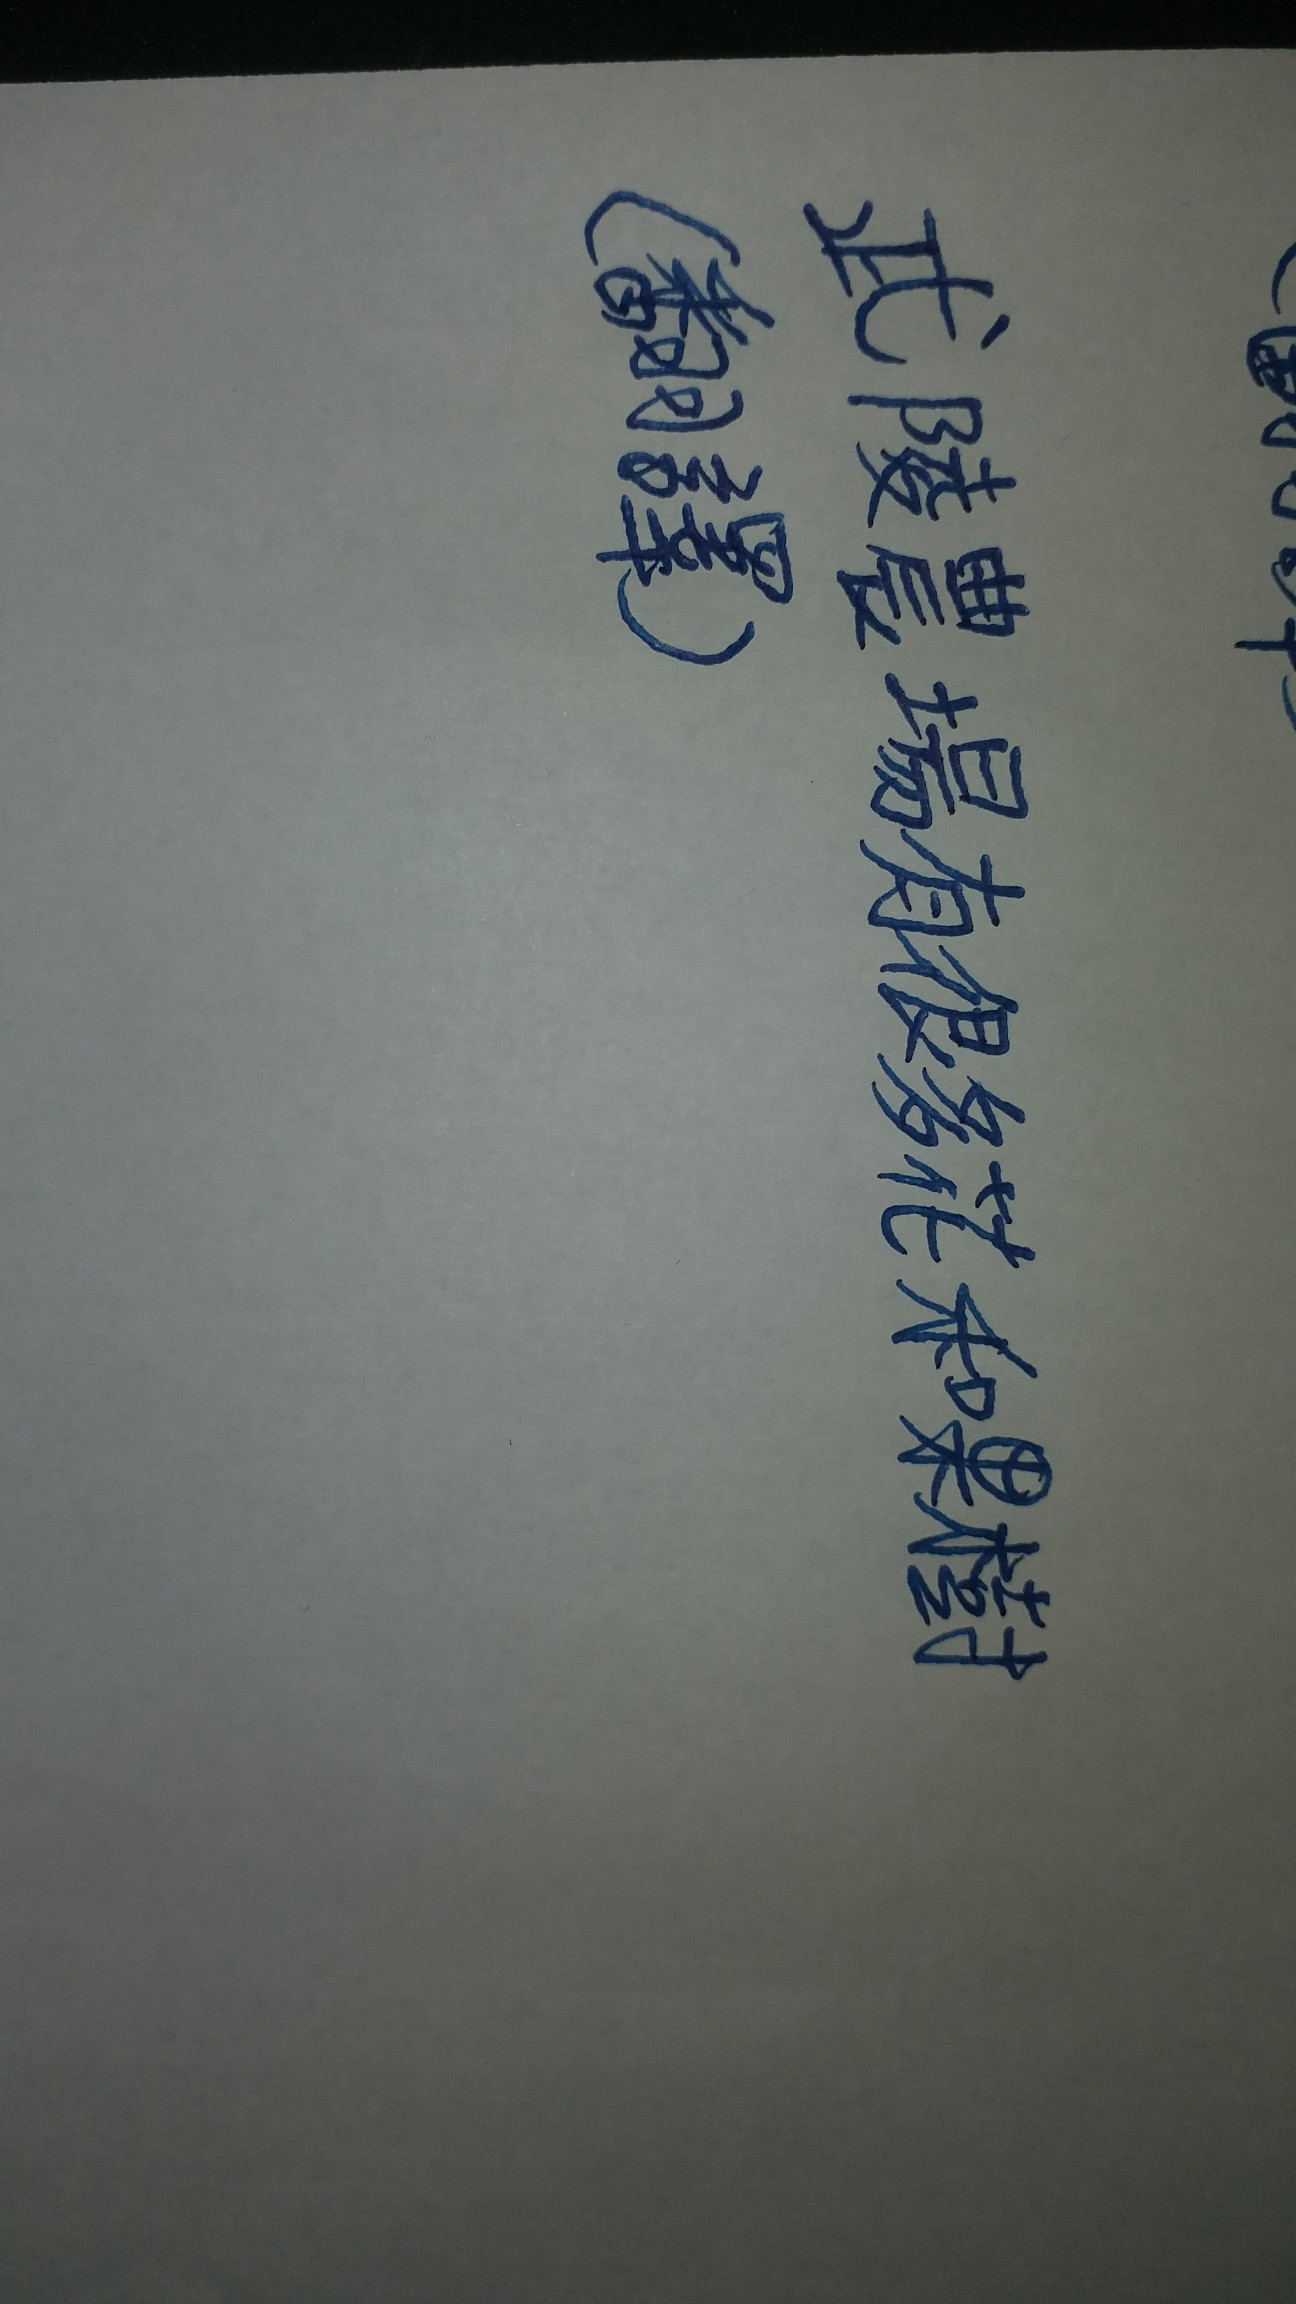 武陵農場有很多花和果樹
(翻譯)